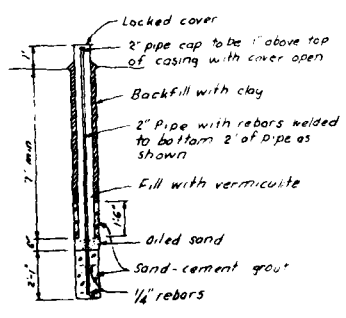 Locked cover
2" pipe cap to be 1" above top
of casing with cover open
Backfill with clay
2" Pipe with rebars welded
to bottom 2' of pipe as
shown
Fill with vermiculite
Oiled sand
Sand-cement grout
1/4" rebars
1'
7' min
1'-6"
6"
2'-1"